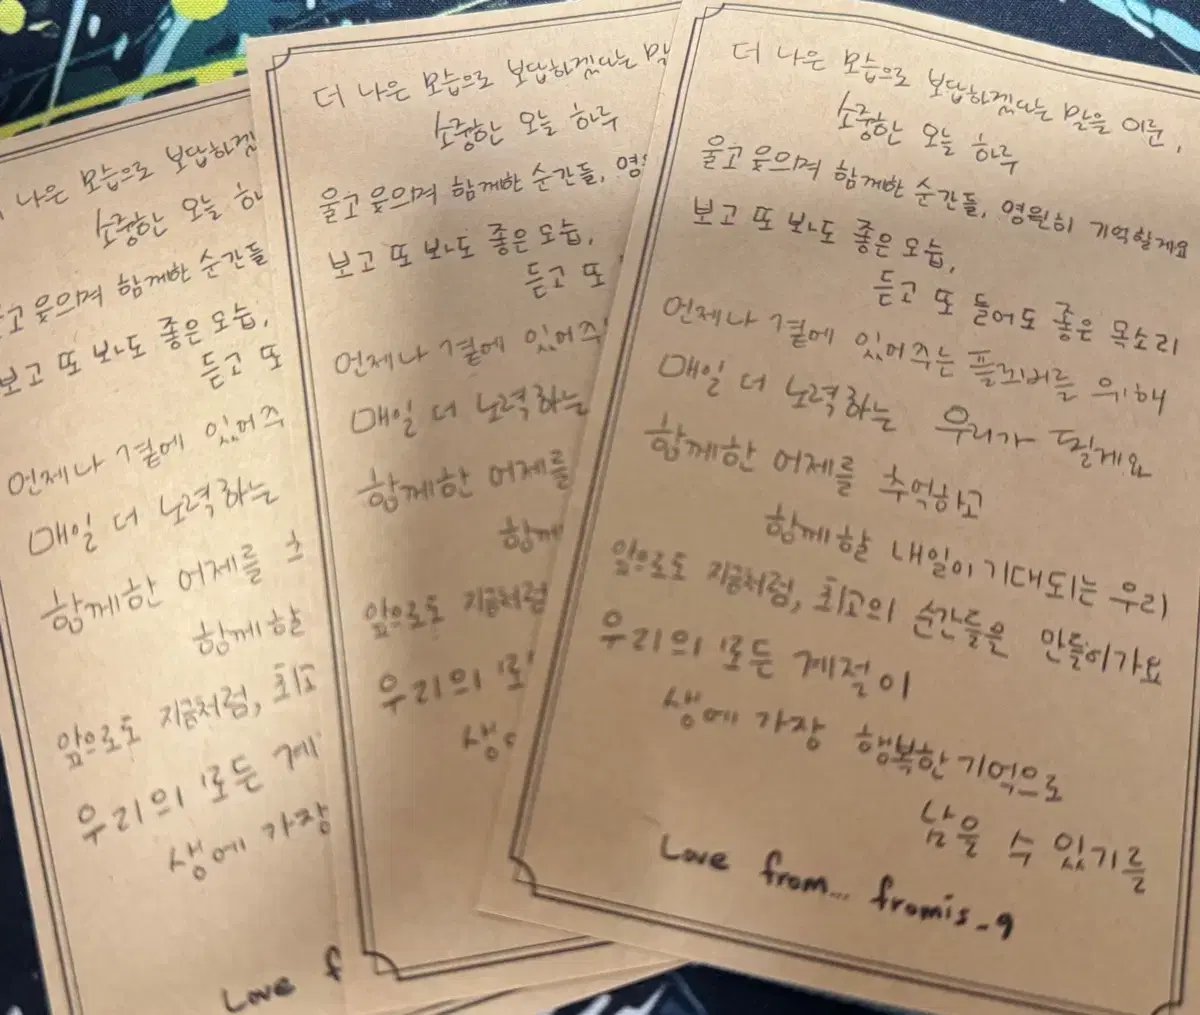 더 나은 모습으로 보답하겠
소중한 오늘 하
고 웃으며 함께한 순간들
보고 또 봐도 좋은 모습,
듣고 또
언제나 곁에 있어주
매일 더 노력하는
함께한 어제를
함께할
앞으로도 지금처럼, 최고
우리의 모든 계
생에 가장
Love f
더 나은 모습으로 보답하겠다는 말
소중한 오늘 하루
울고 웃으며 함께한 순간들, 영
보고 또 봐도 좋은 모습,
듣고 또
언제나 곁에 있어주
매일 더 노력하는
함께한 어제를
함께
앞으로도 지금처럼
우리의 모
생
더 나은 모습으로 보답하겠다는 말을 이룬,
소중한 오늘 하루
울고 웃으며 함께한 순간들, 영원히 기억할게요
보고 또 봐도 좋은 모습,
듣고 또 들어도 좋은 목소리
언제나 곁에 있어주는 플로버를 위해
매일 더 노력하는 우리가 될게요
함께한 어제를 추억하고
함께할 내일이 기대되는 우리
앞으로도 지금처럼, 최고의 순간들을 만들어가요
우리의 모든 계절이
생에 가장 행복한 기억으로
남을 수 있기를
Love from... fromis_9